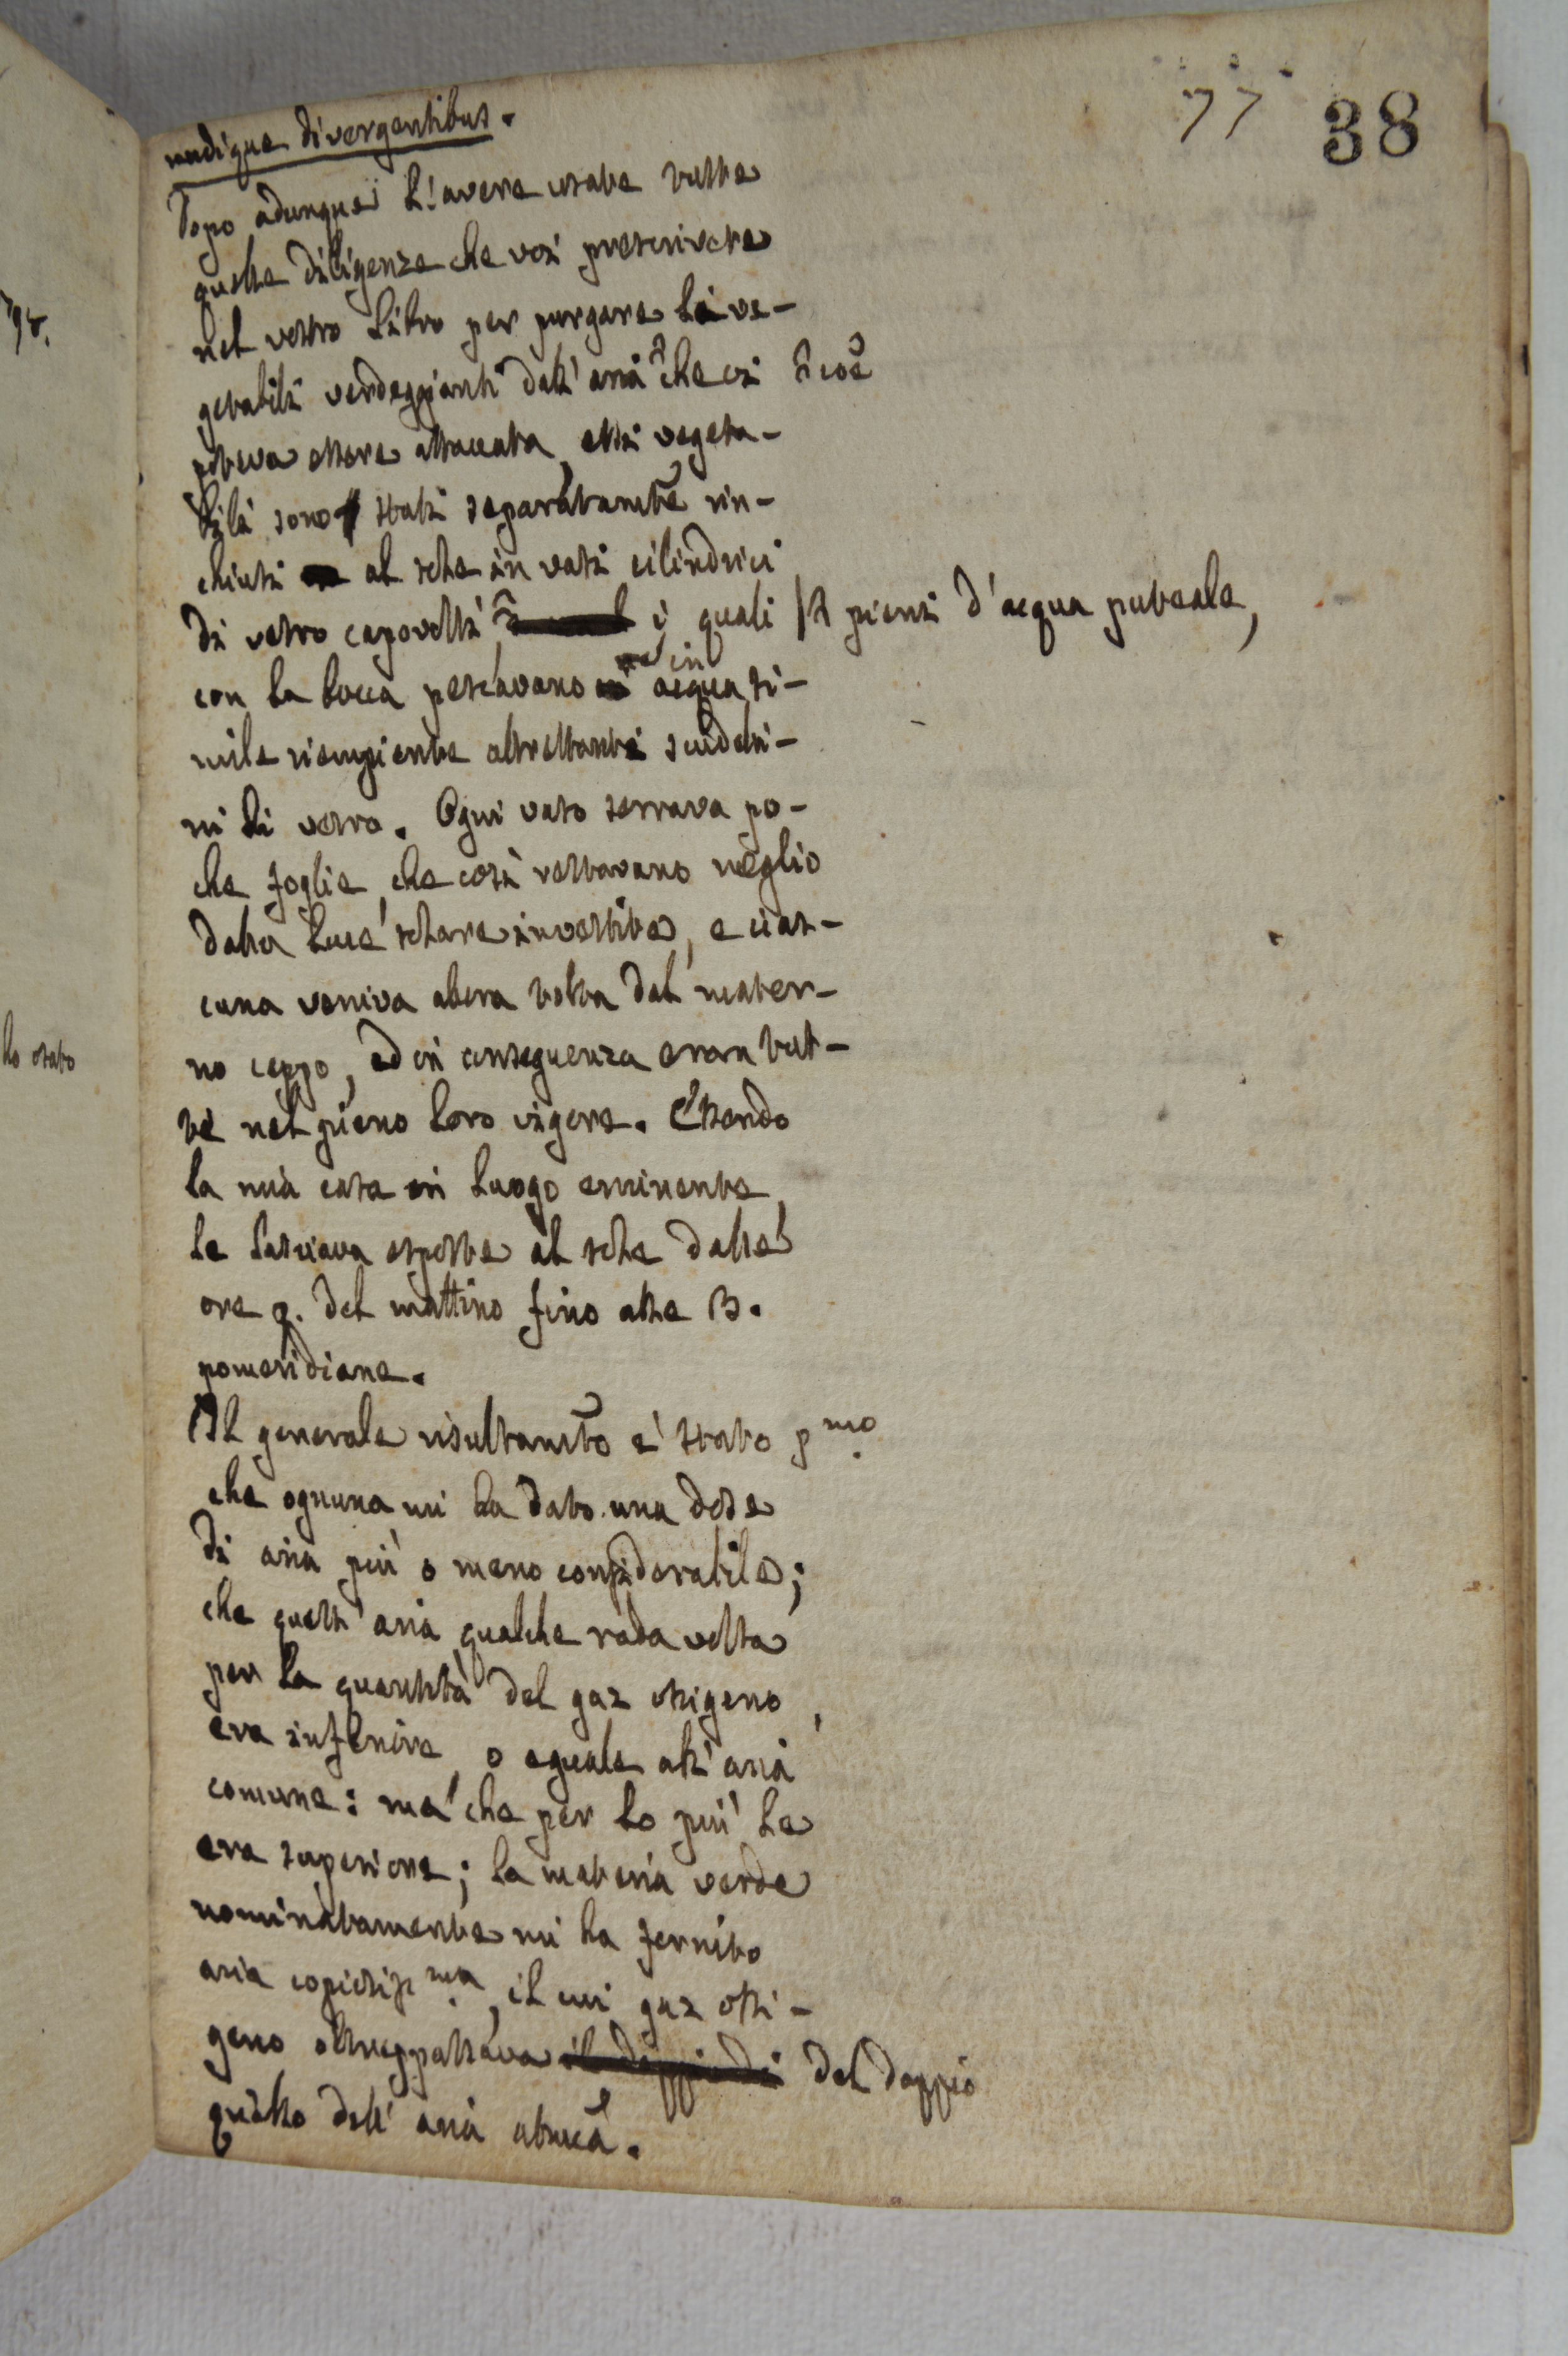 77 38
undique divergentibus.
Dopo adunque l'avere usate tutte
quelle diligenze che voi prescrivete
nel vostro libro per purgare li ve-
getabili verdeggianti dall'aria che vi
poteva essere attaccata, essi vegeta-
bili sono stati separatamte rin-
chiusi al sole in vasi cilindrici
di vetro capovolti, i quali pieni d'acqua puteale,
con la bocca pescavano in acqua si-
mile riempiente altrettanti scudelli-
ni di vetro. Ogni vaso serrava po-
che foglie, che così restavano meglio
dalla luce solare investite, e cias-
cuna veniva allora tolta dal mater-
no ceppo, ed in conseguenza eran tut-
te nel pieno loro vigore. Essendo
la mia casa in luogo eminente,
le lasciava esposte al sole dalle
ore 9. del mattino fino alle 3.
pomeridiane.
Il generale risultamto è stato pmo.
che ognuna mi ha dato una dose
di aria più o meno considerabile;
che quest'aria qualche rada volta
per la quantità del gaz ossigeno,
era inferiore, o eguale all'aria
comune: ma che per lo più le
era superiore; la materia verde
nominatamente mi ha fornito
aria copiosissma, il cui gaz ossi-
geno oltreppassava il doppio di del doppio
quello dell'aria
ho usato